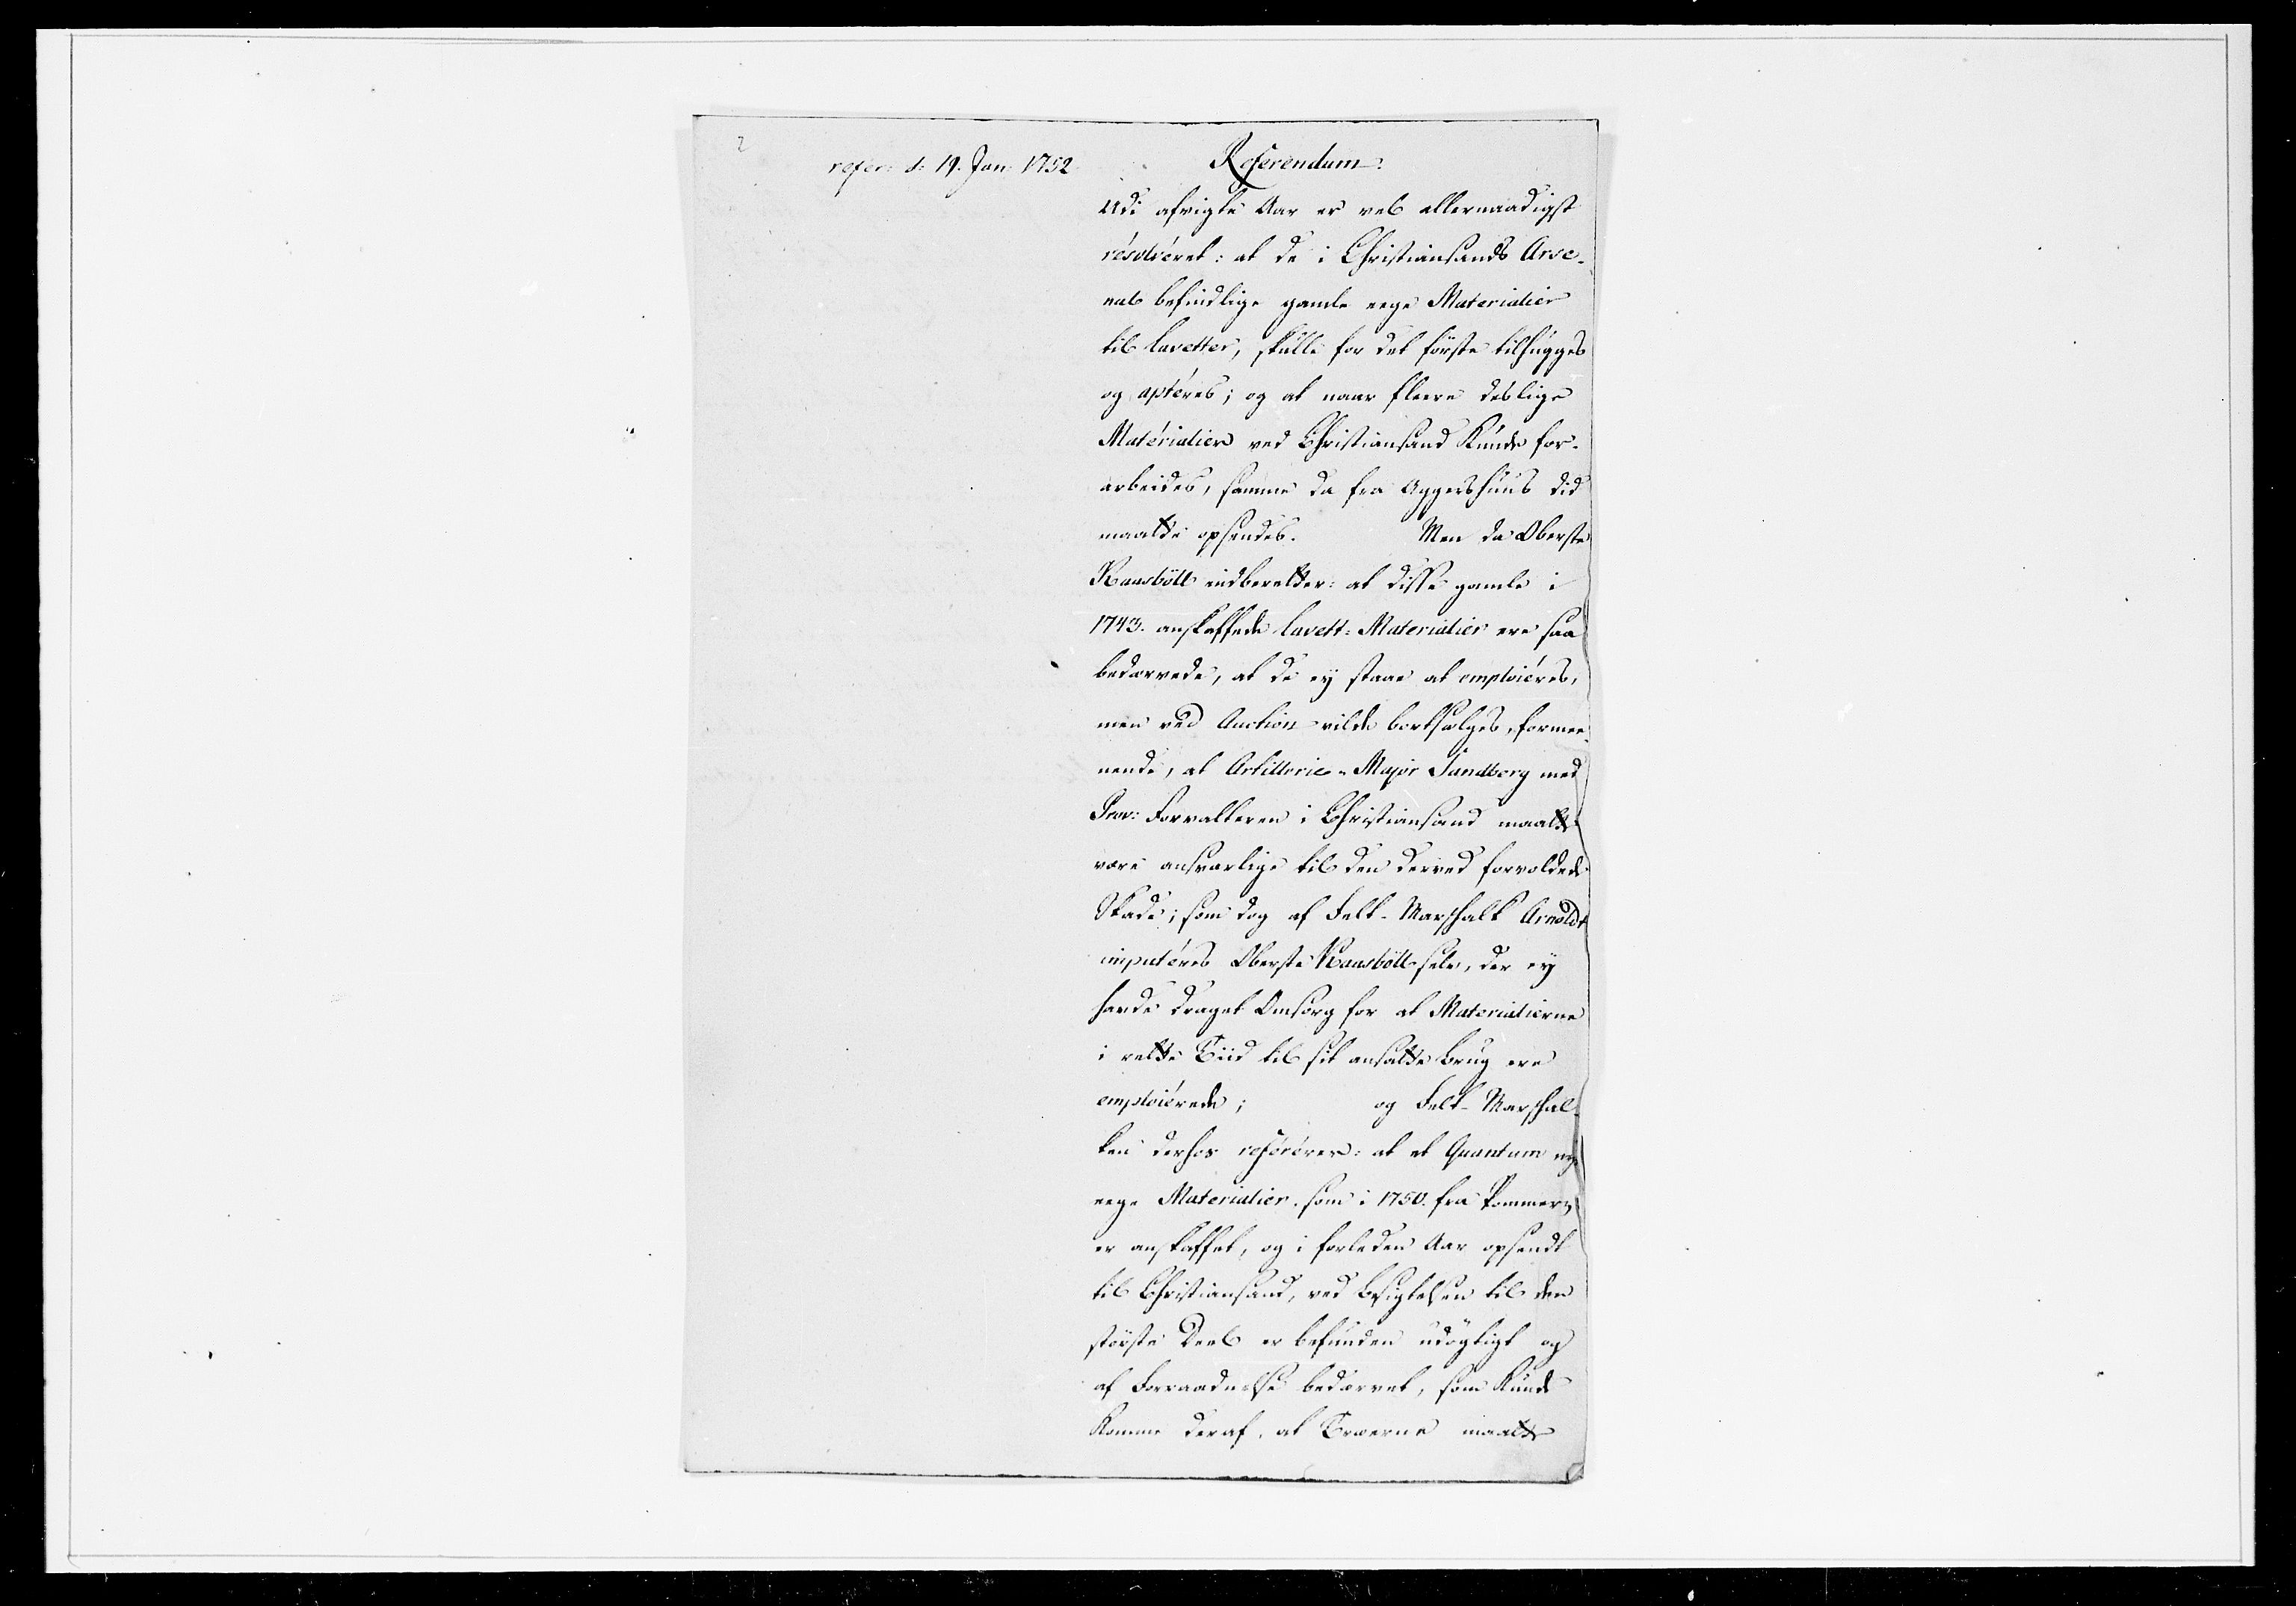 2
refer: d: 19. Jan: 1752
Referendum:
Udi afvigte Aar er vel allernaadigst
résolveret: at de i Christiansands Arse-
nal befindlige gamle eege Materialier
til lavetter, skulle for det förste tilhugges
og aptéres; og at naar fleere deslige
Matérialier ved Christiansand kunde for-
arbeides, samme da fra Aggershuus did
maatte opsendes. Men da Oberste
Kaasböll indberetter: at disse gamle i
1743. anskaffede lavett-Materialier ere saa
bedærvede, at de ey staae at emploiéres,
men ved Auction vilde bortsælges, formee-
nende, at Artillerie-Major Sandberg med
Forvalteren i Christiansand maatte
være ansvarlige til den derved forvoldede
Skade; som dog af Felt-Marschalk Arnoldt
imputéres Oberste Kaasböll selv, der ey
havde draget Omsorg for at Materialierne
i rette Tiid til sit ansatte brug ere
emploiérede; og Felt-Marschal-
ken derhos reférérer: at et Quantum nye
eege Materialier, som i 1750. fra Pommern
er anskaffet, og i forleden Aar opsendt
til Christiansand, ved Besigtelsen til den
störste Deel er befunden udögtigt og
af Forraadnelse bedærvet, som kunde
komme deraf, at Træerne maatte